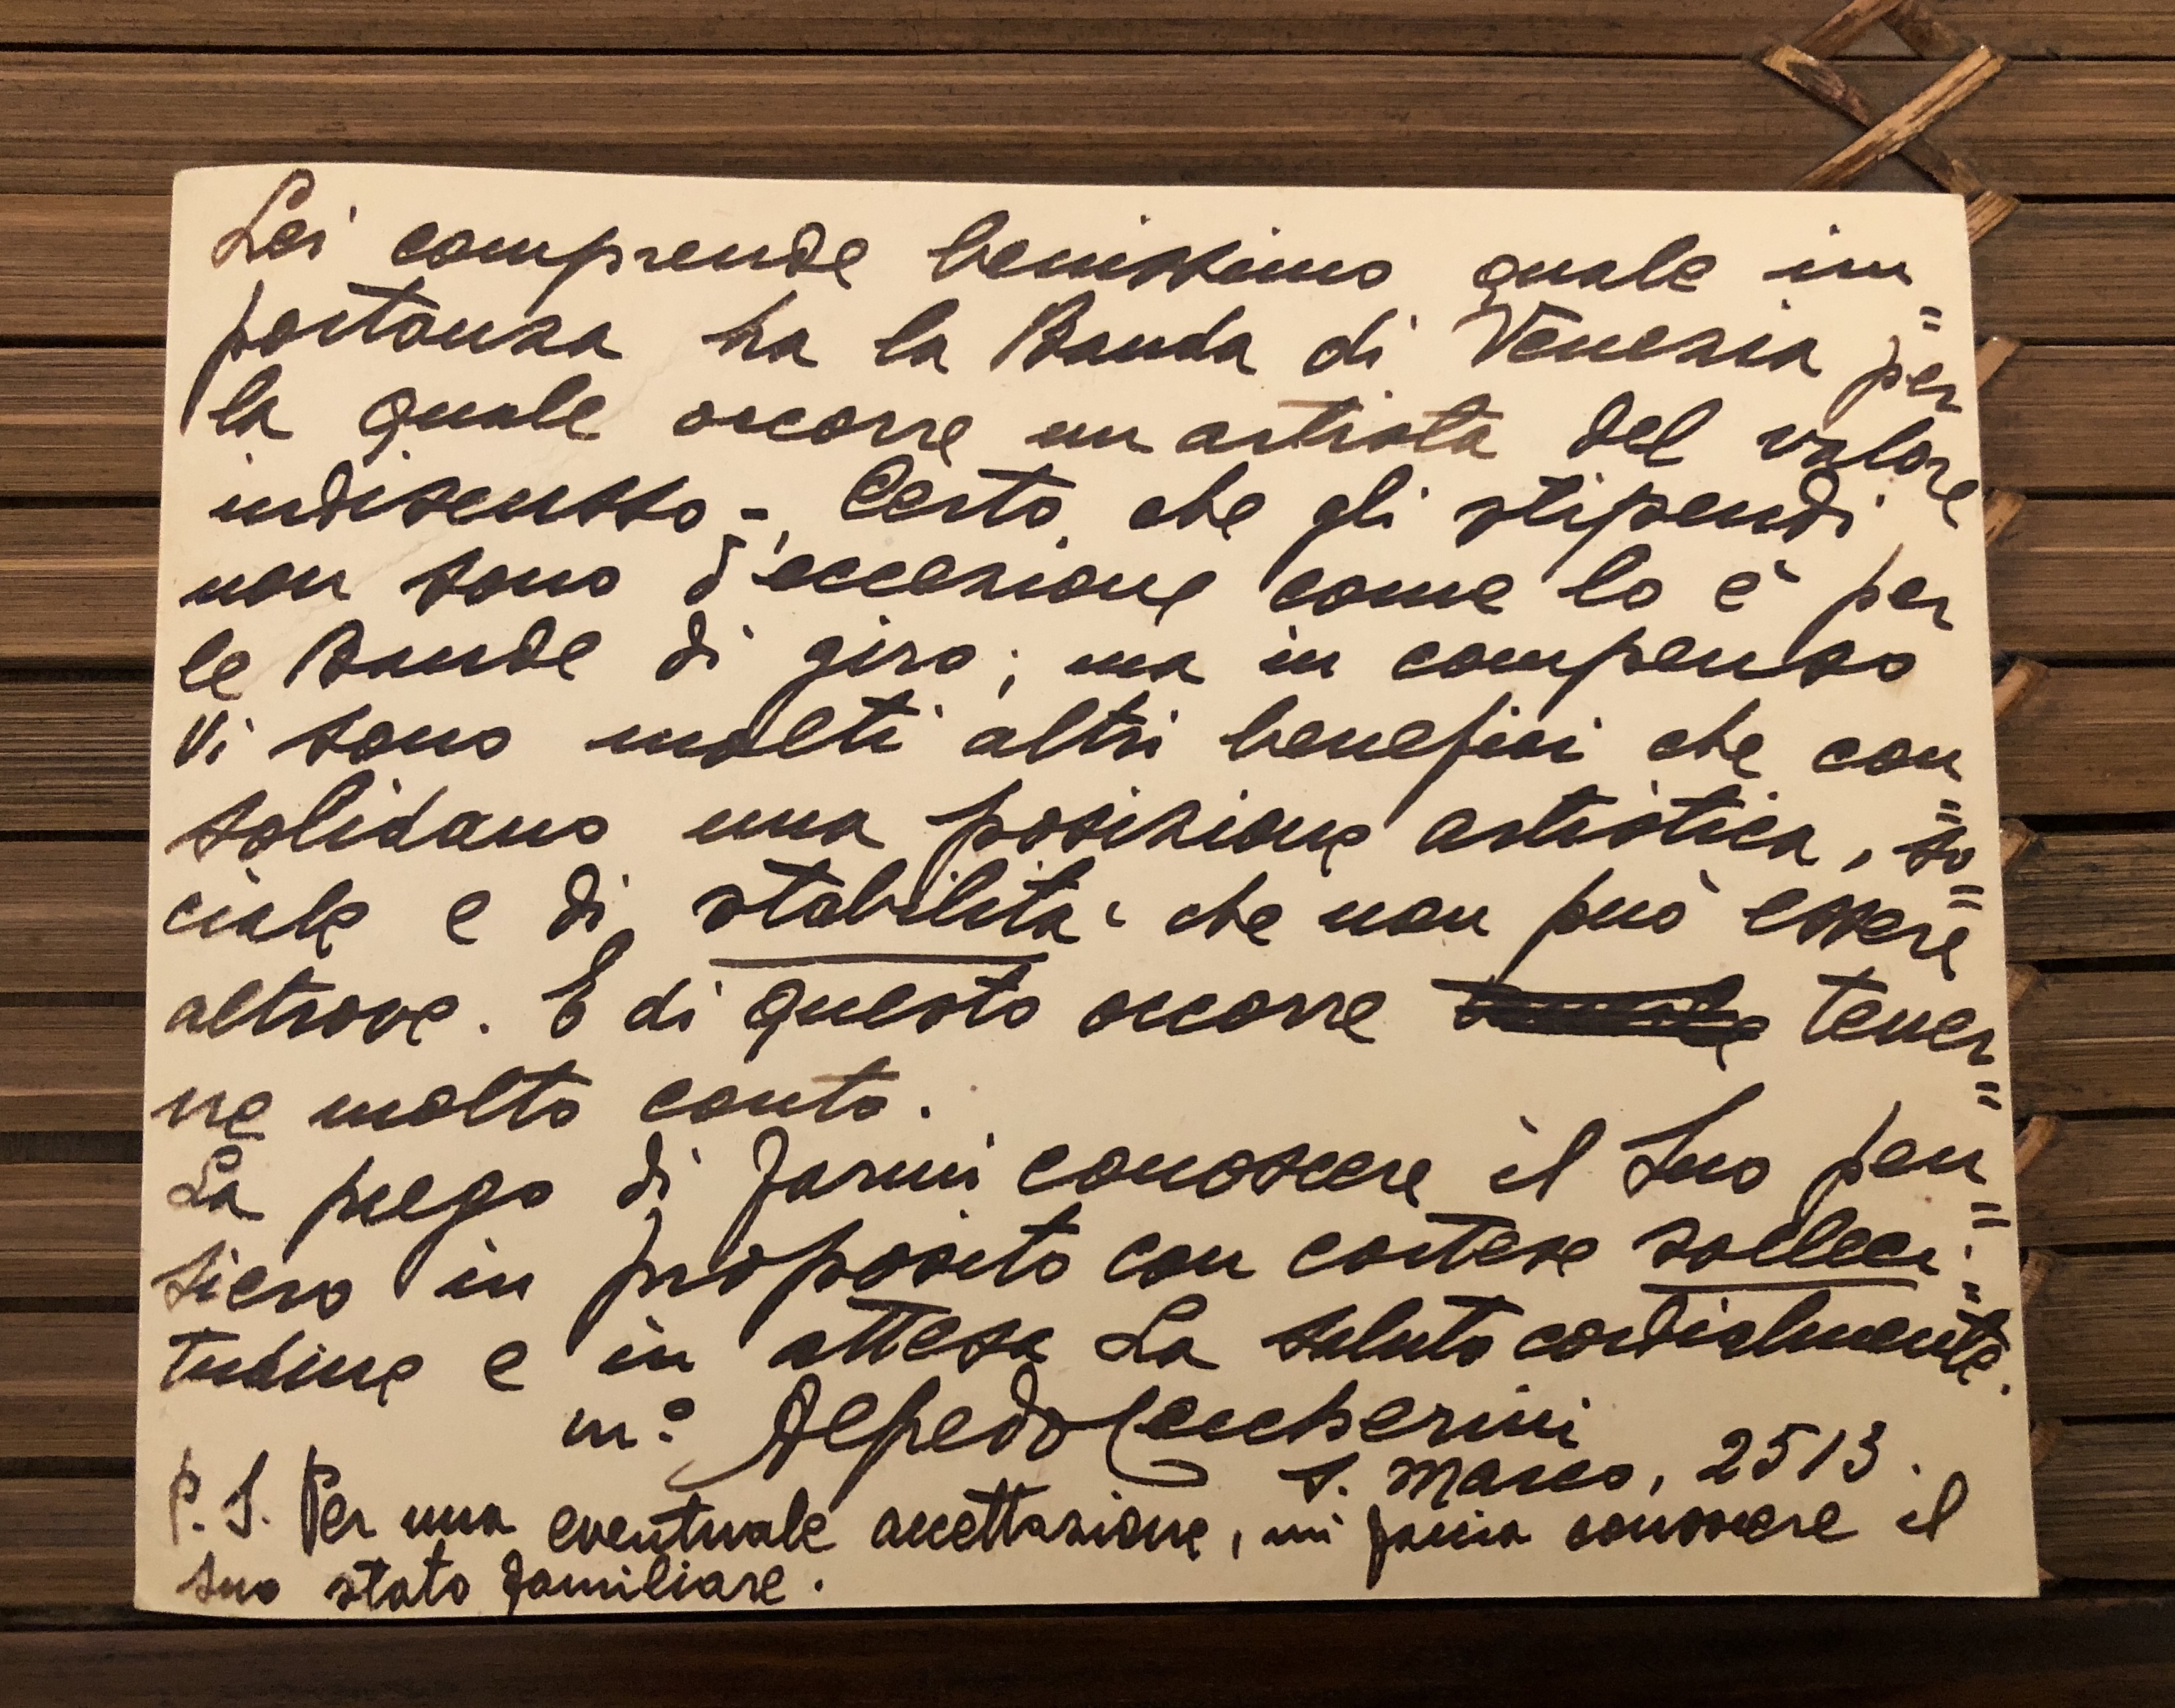 Lei comprende benissimo quale im=
portanza ha la Banda di Venezia per
la quale occorre un artista del valore
indiscusso -. Certo che gli stipendi
non sono d'eccezione come lo è per
le Bande di giro; ma in compenso
Vi sono molti altri benefici che con=
solidano una posizione artistica, so=
ciale e di stabilità che non può essere
altrove. E di questo occorre tener=
ne molto conto.
La prego di farmi conoscere il Suo pen=
siero in proposito con cortese solleci=
tudine e in attesa La saluto cordialmente.
m.° Alfredo Ceccherini
S. Marco, 2513.
P.S. Per una eventuale accettazione, mi faccia conoscere il
suo stato familiare.